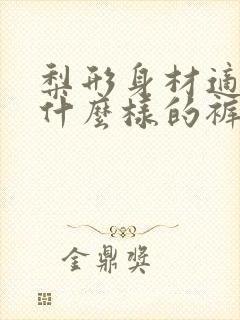 梨形身材適
什麼樣的褲
金鼎獎